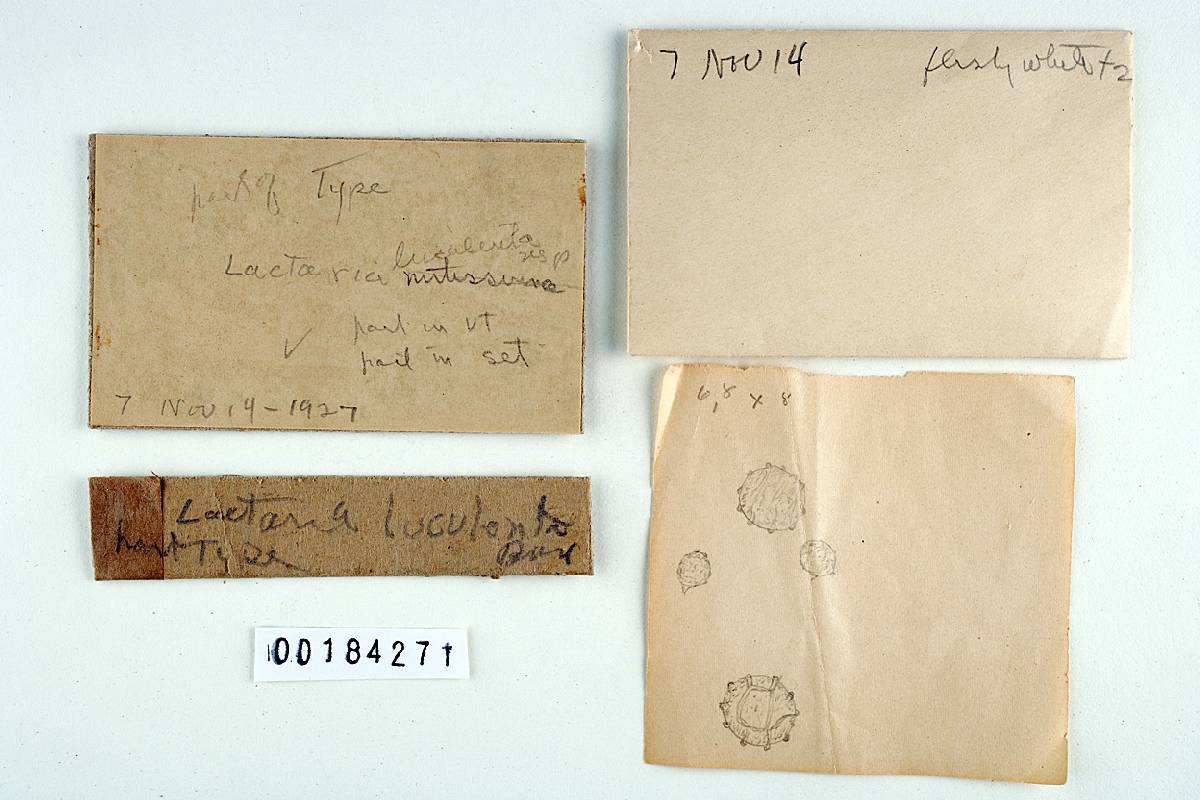 part of Type
luculenta
n. sp
Lactaria mitissima
part in vt
part in set
7 Nov 14-1927
7 Nov 14
fleshy white
Lactaria luculenta
part Type
Burl
00184271
6,8 x 8